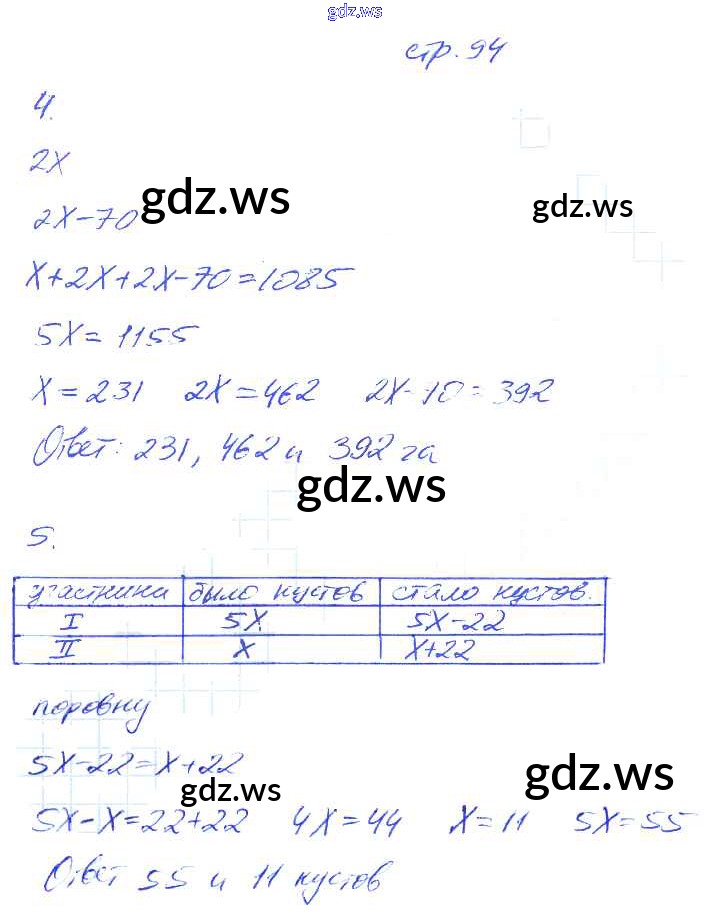 gdz.ws
стр. 94
4.
2x
2x-70
gdz.ws
gdz.ws
x+2x+2x-70=1085
5x=1155
x=231 2x=462 2x-10=392
Ответ: 231, 462 и 392 га
gdz.ws
5.
участники было кустов стало кустов.
I 5x 5x-22
II x x+22
поровну
5x-22=x+22
gdz.ws
gdz.ws
5x-x=22+22 4x=44 x=11 5x=55
Ответ 55 и 11 кустов